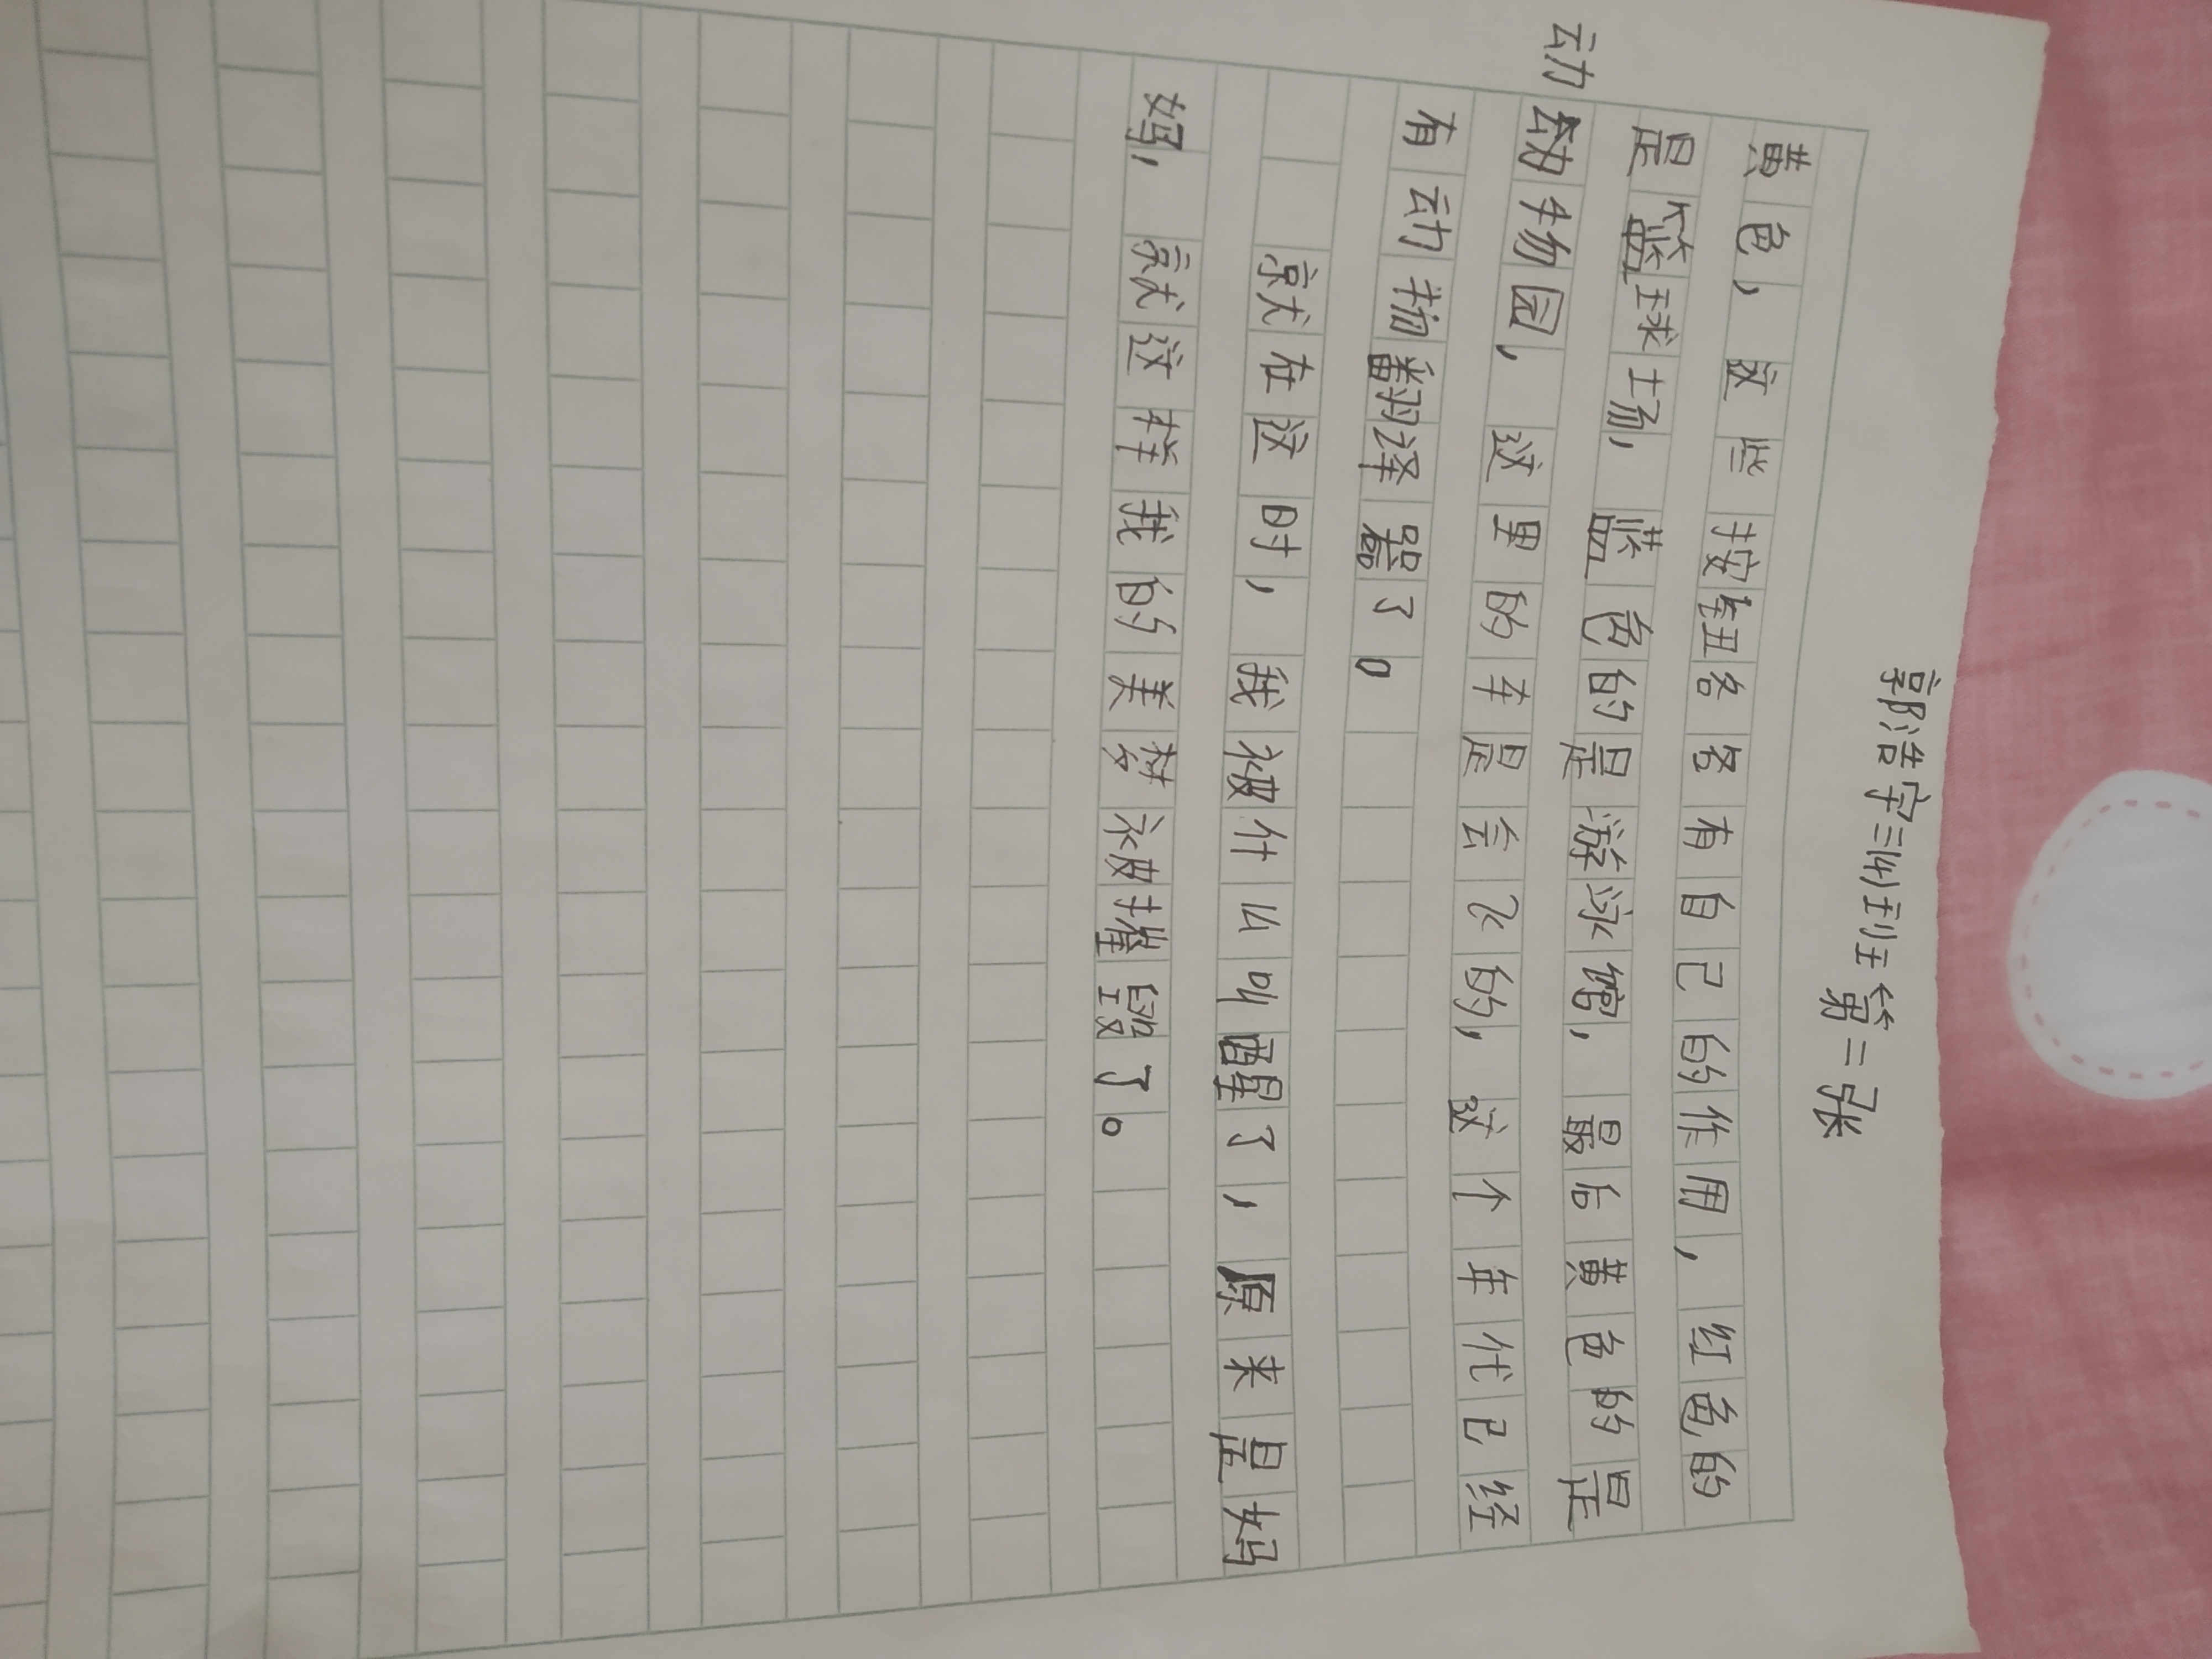 郭浩宇三(4)班第二张
黄色，这些按钮各各有自己的作用，红色的
是篮球场，蓝色的是游泳馆，最后黄色的是
动
动物园，这里的车是会飞的，这个年代已经
有动物翻译器了。
就在这时，我被什么叫醒了，原来是妈
妈，就这样我的美梦被摧毁了。